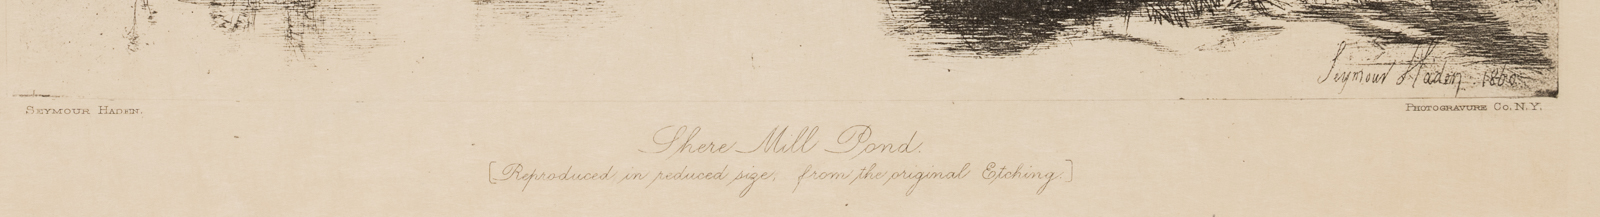 Seymour Haden 1860
SEYMOUR HADEN.
PHOTOGRAVURE CO. N.Y.
Shere Mill Pond.
[Reproduced, in reduced size, from the original Etching.]